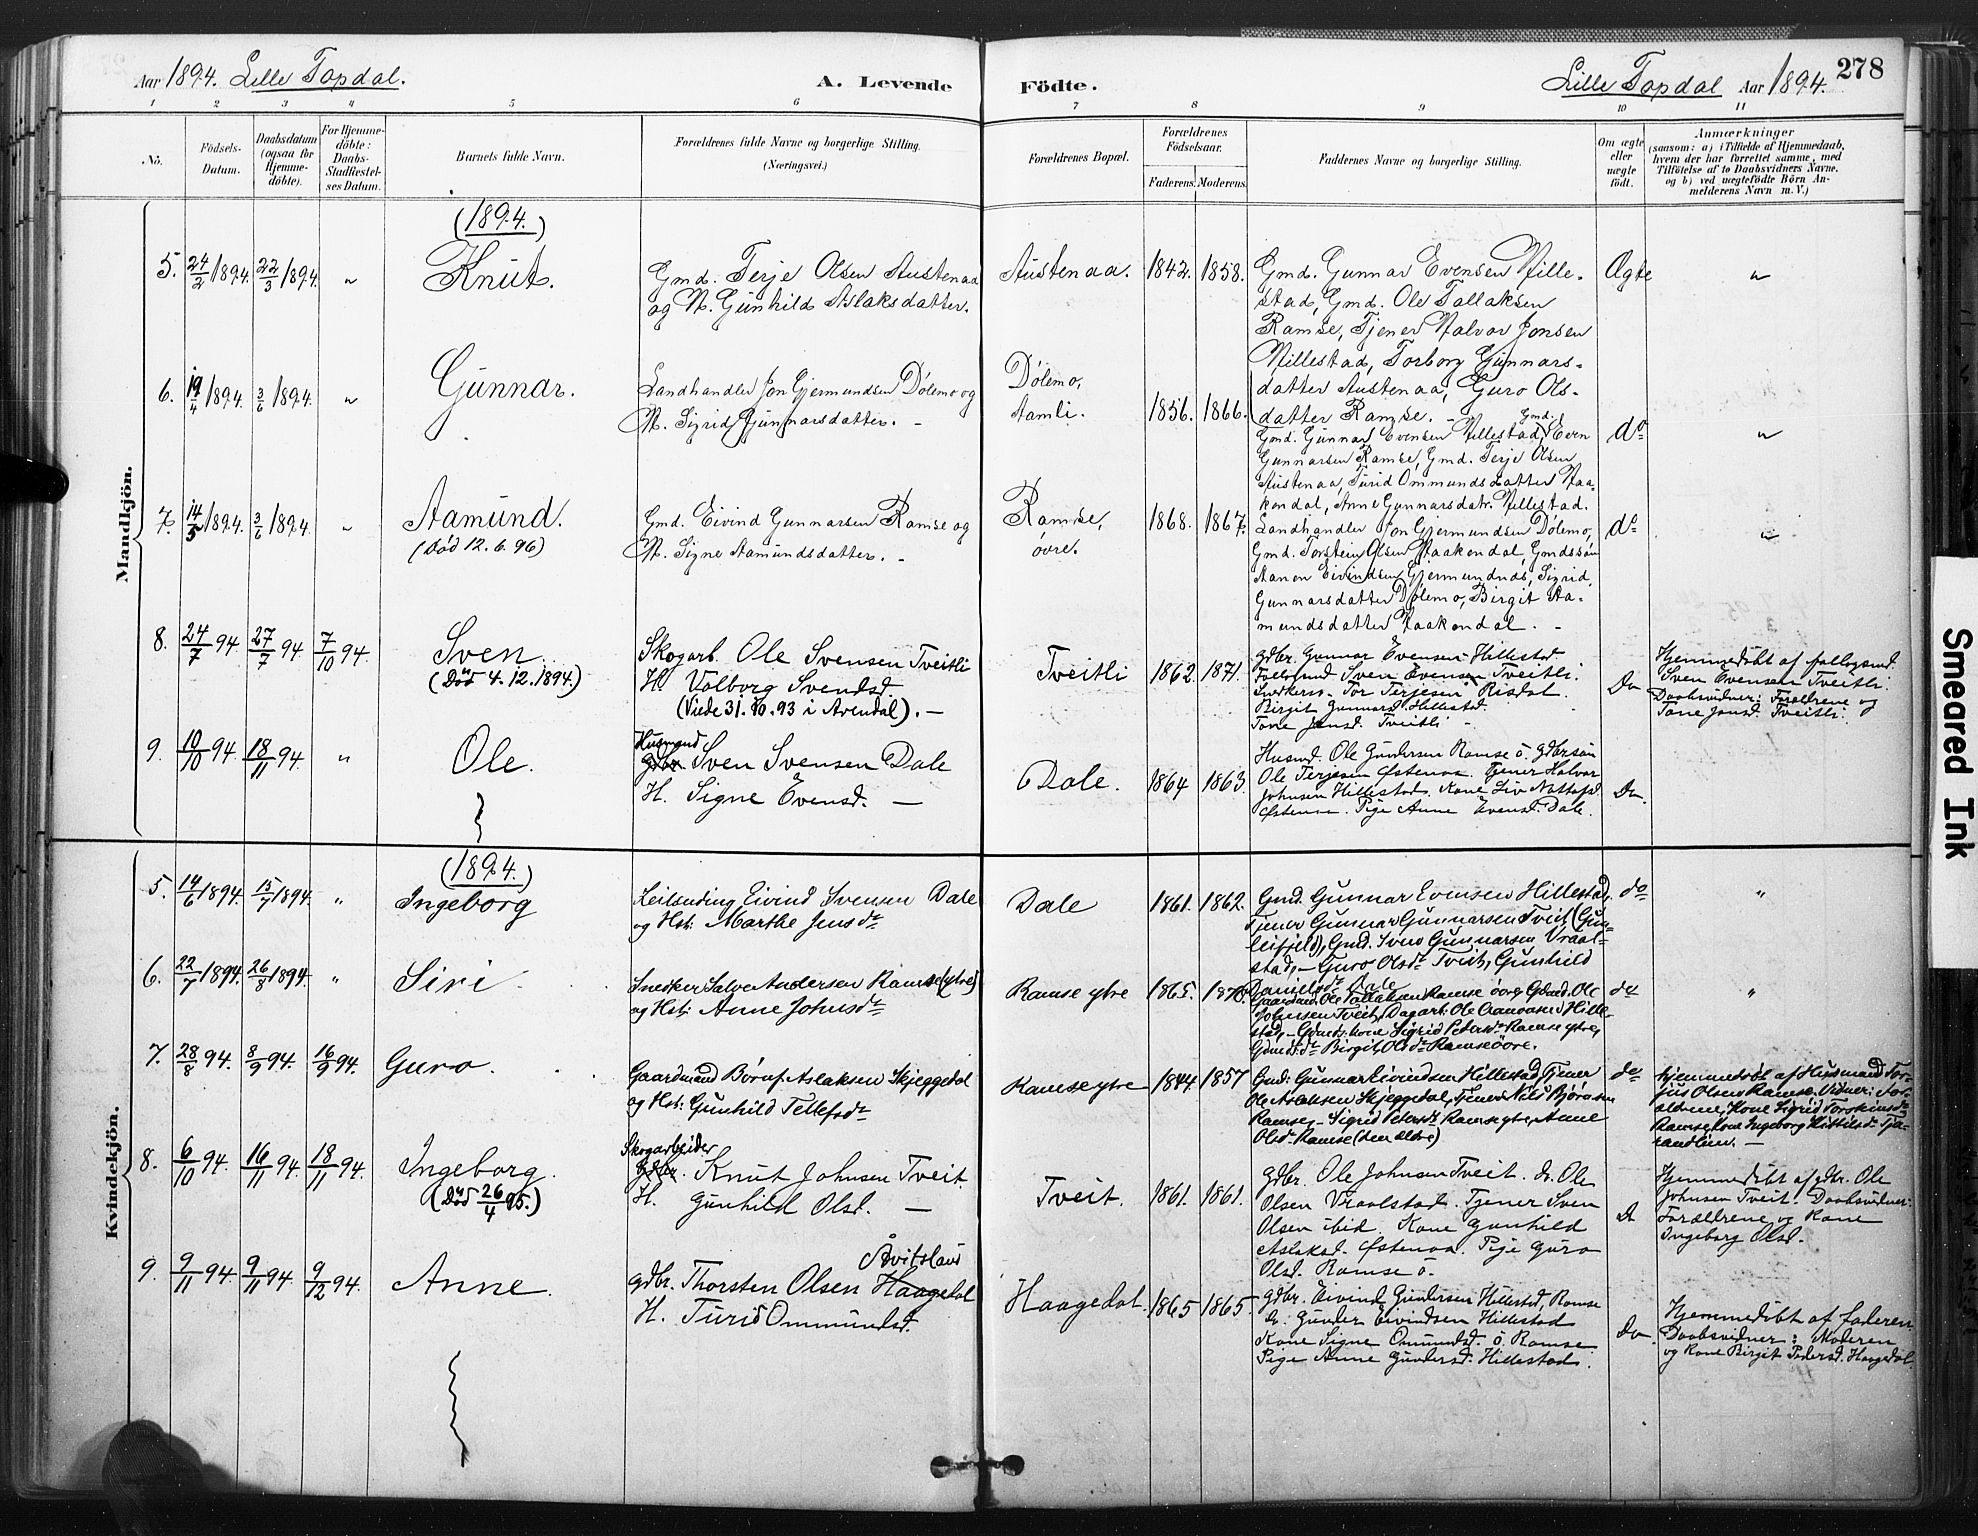 Aar 1894. Lille Topdal.
A. Levende Födte.
Lille Topdal Aar 1894.
278
1 2 3 4 5 6 7 8 9 10 11
No.
Födsels-
Datum.
Daabsdatum
(ogsaa for
Hjemme-
döbte).
For Hjemme-
döbte:
Daabs-
Stadfæstel-
ses Datum.
Barnets fulde Navn.
Forældrenes fulde Navne og borgerlige Stilling.
(Næringsvei.)
Forældrenes Bopæl.
Forældrenes
Födselsaar.
Faderens. Moderens.
Faddernes Navne og borgerlige Stilling.
Om ægte
eller
uægte
födt.
Anmærkninger
(saasom: a) i Tilfælde af Hjemmedaab,
hvem der har forrettet samme, med
Tilföielse af to Daabsvidners Navne,
og b) ved uægtefödte Börn An-
melderens Navn m. V.)
Mandkjön.
(1894.)
5. 24/2 1894. 22/3 1894. "
Knut.
Gmd. Terje Olsen Austenaa
og M. Gunhild Aslaksdatter.
Austenaa. 1842. 1858.
Gmd. Gunnar Evensen Hille-
stad, Gmd. Ole Tallaksen
Ramse, Tjener Halvor Jonsen
Hillestad, Torborg Gunnars-
datter Austenaa, Guro Ols-
datter Ramse. -
Ægte "
6. 19/4 1894. 3/6 1894. "
Gunnar.
Landhandler Jon Gjermundsen Dølemo og
M. Sigrid Gunnarsdatter. -
Dølemo,
Aamli.
1856. 1866.
Gmd. Gunnar Evensen Hillestad, Gmd. Even
Gunnarsen Ramse, Gmd. Terje Olsen
Austenaa, Turid Ommundsdatter Haa-
kendal, Anne Gunnarsdatr. Hillestad.
do "
7. 14/5 1894. 3/6 1894. "
Aamund.
(Død 12.6.96)
Gmd. Eivind Gunnarsen Ramse og
M. Signe Aamundsdatter. -
Ramse,
øvre.
1868. 1867.
Landhandler Jon Gjermundsen Dølemo,
Gmd. Torstein Olsen Haakendal, Gmdssøn
Aanen Eivindsen Gjermundnds, Sigrid
Gunnarsdatter Dølemo, Birgit Aa-
mundsdatter Haakendal. -
do "
8. 24/7 94 27/7 94 7/10 94.
Sven
(Død 4.12.1894.)
Skogarb. Ole Svensen Tveitli
H. Valborg Svendsd.
(Viede 31.10.93 i Arendal). -
Tveitli 1862. 1871.
gdbr. Gunnar Evensen Hillestad
Sven Evensen Tveitli.
Tor Terjesen Risdal.
Birgit Gunnarsd. Hillestad.
Tone Jonsd. Tveitli -
Do
Hjemmedøbt af
Sven Evensen Tveitli.
Daabsvidner: Forældrene og
Tone Jonsd. Tveitli.
9. 10/10 94. 18/11 94. "
Ole.
Husmand
Gdbr. Sven Svensen Dale
H. Signe Evensd. -
Dale. 1864 1863.
Husmd. Ole Gundersen Ramse ö. gdbrsön
Ole Terjesen Østenaa. Tjener Halvor
Johnsen Hillestad. Kone Liv
Østenaa. Pige Anne Evensd. Dale.
Do.
Kvindekjön.
(1894.)
5. 14/6 1894. 15/7 1894. "
Ingeborg
Leilending Eivind Svensen Dale
og Hst: Marthe Jensdtr
Dale 1861. 1862.
Gmd. Gunnar Evensen Hillestad,
Tjener Gunnar Gunnarsen Tveit (Gun-
leifjeld), Gmd. Sven Gunnarsen Vraal-
stad, - Guro Olsdtr Tveit, Gunhild
Danielsdtr Dale
do "
6. 22/7 1894. 26/8 1894. "
Siri
Snedker Salve Andersen Ramse (ytre)
og Hst: Anne Johnsdtr
Ramse ytre 1865. 1870.
Gaardmd. Ole Tallaksen Ramse övre, Gdmd. Ole
Johnsen Tveit, Dagarb. Ole Hille-
stad, - Gdmds kone Sigrid Petersdtr Ramse ytre,
Gdmdsdtr Birgit Olsdtr Ramse övre.
do "
7. 28/8 94. 8/9 94. 16/9 94.
Guro.
Gaardmand Børuf Aslaksen Skjeggedal
og Hst: Gunhild Tellefsdtr
Ramse ytre 1844 1857
Gmd: Gunnar Eivindsen Hillestad, Tjener
Ole Aslaksen Skjeggedal, Tjener Nils Bjørnsen
Ramse, - Sigrid Petersdtr Ramse ytre, Anne
Olsdtr Ramse (den ældre)
do
Hjemmedøbt af Husmand Ter-
jus Olsen Ramse. Vidner: For-
ældrene, Kone Sigrid
Ramse, Kone Ingeborg Kittilsdtr
-
8. 6/10 94. 16/11 94. 18/11 94.
Ingeborg.
(Død 26/4 95.)
Skogarbeider
Gdbr. Knut Johnsen Tveit.
H. Gunhild Olsd. -
Tveit. 1861. 1861.
gdbr. Ole Johnsen Tveit. do. Ole
Olsen Vraalstad. Tjener Sven
Olsen ibid. Kone Gunhild
Aslaksd. Østenaa. Pige Guro
Olsd. Ramse ö.
Hjemmedøbt af gdbr. Ole
Johnsen Tveit. Daabsvidner:
Forældrene og Kone
Ingeborg Olsd.
9. 9/11 94. 9/11 94. 9/12 94.
Anne.
gdbr. Thorsten Olsen Haagedal
H. Turid Ommundsd.
Haagedal. 1865 1865.
gdbr. Eivind Gundersen Hillestad, Ramse
do. Gunder Eivindsen Hillestad
Kone Signe Omundsd. ö. Ramse
Pige Anne Gundersd. Hillestad.
Do.
Hjemmedøbt af faderen.
Daabsvidner: Moderen
og Kone Birgit Pedersd. Haagedal.
Smeared Ink